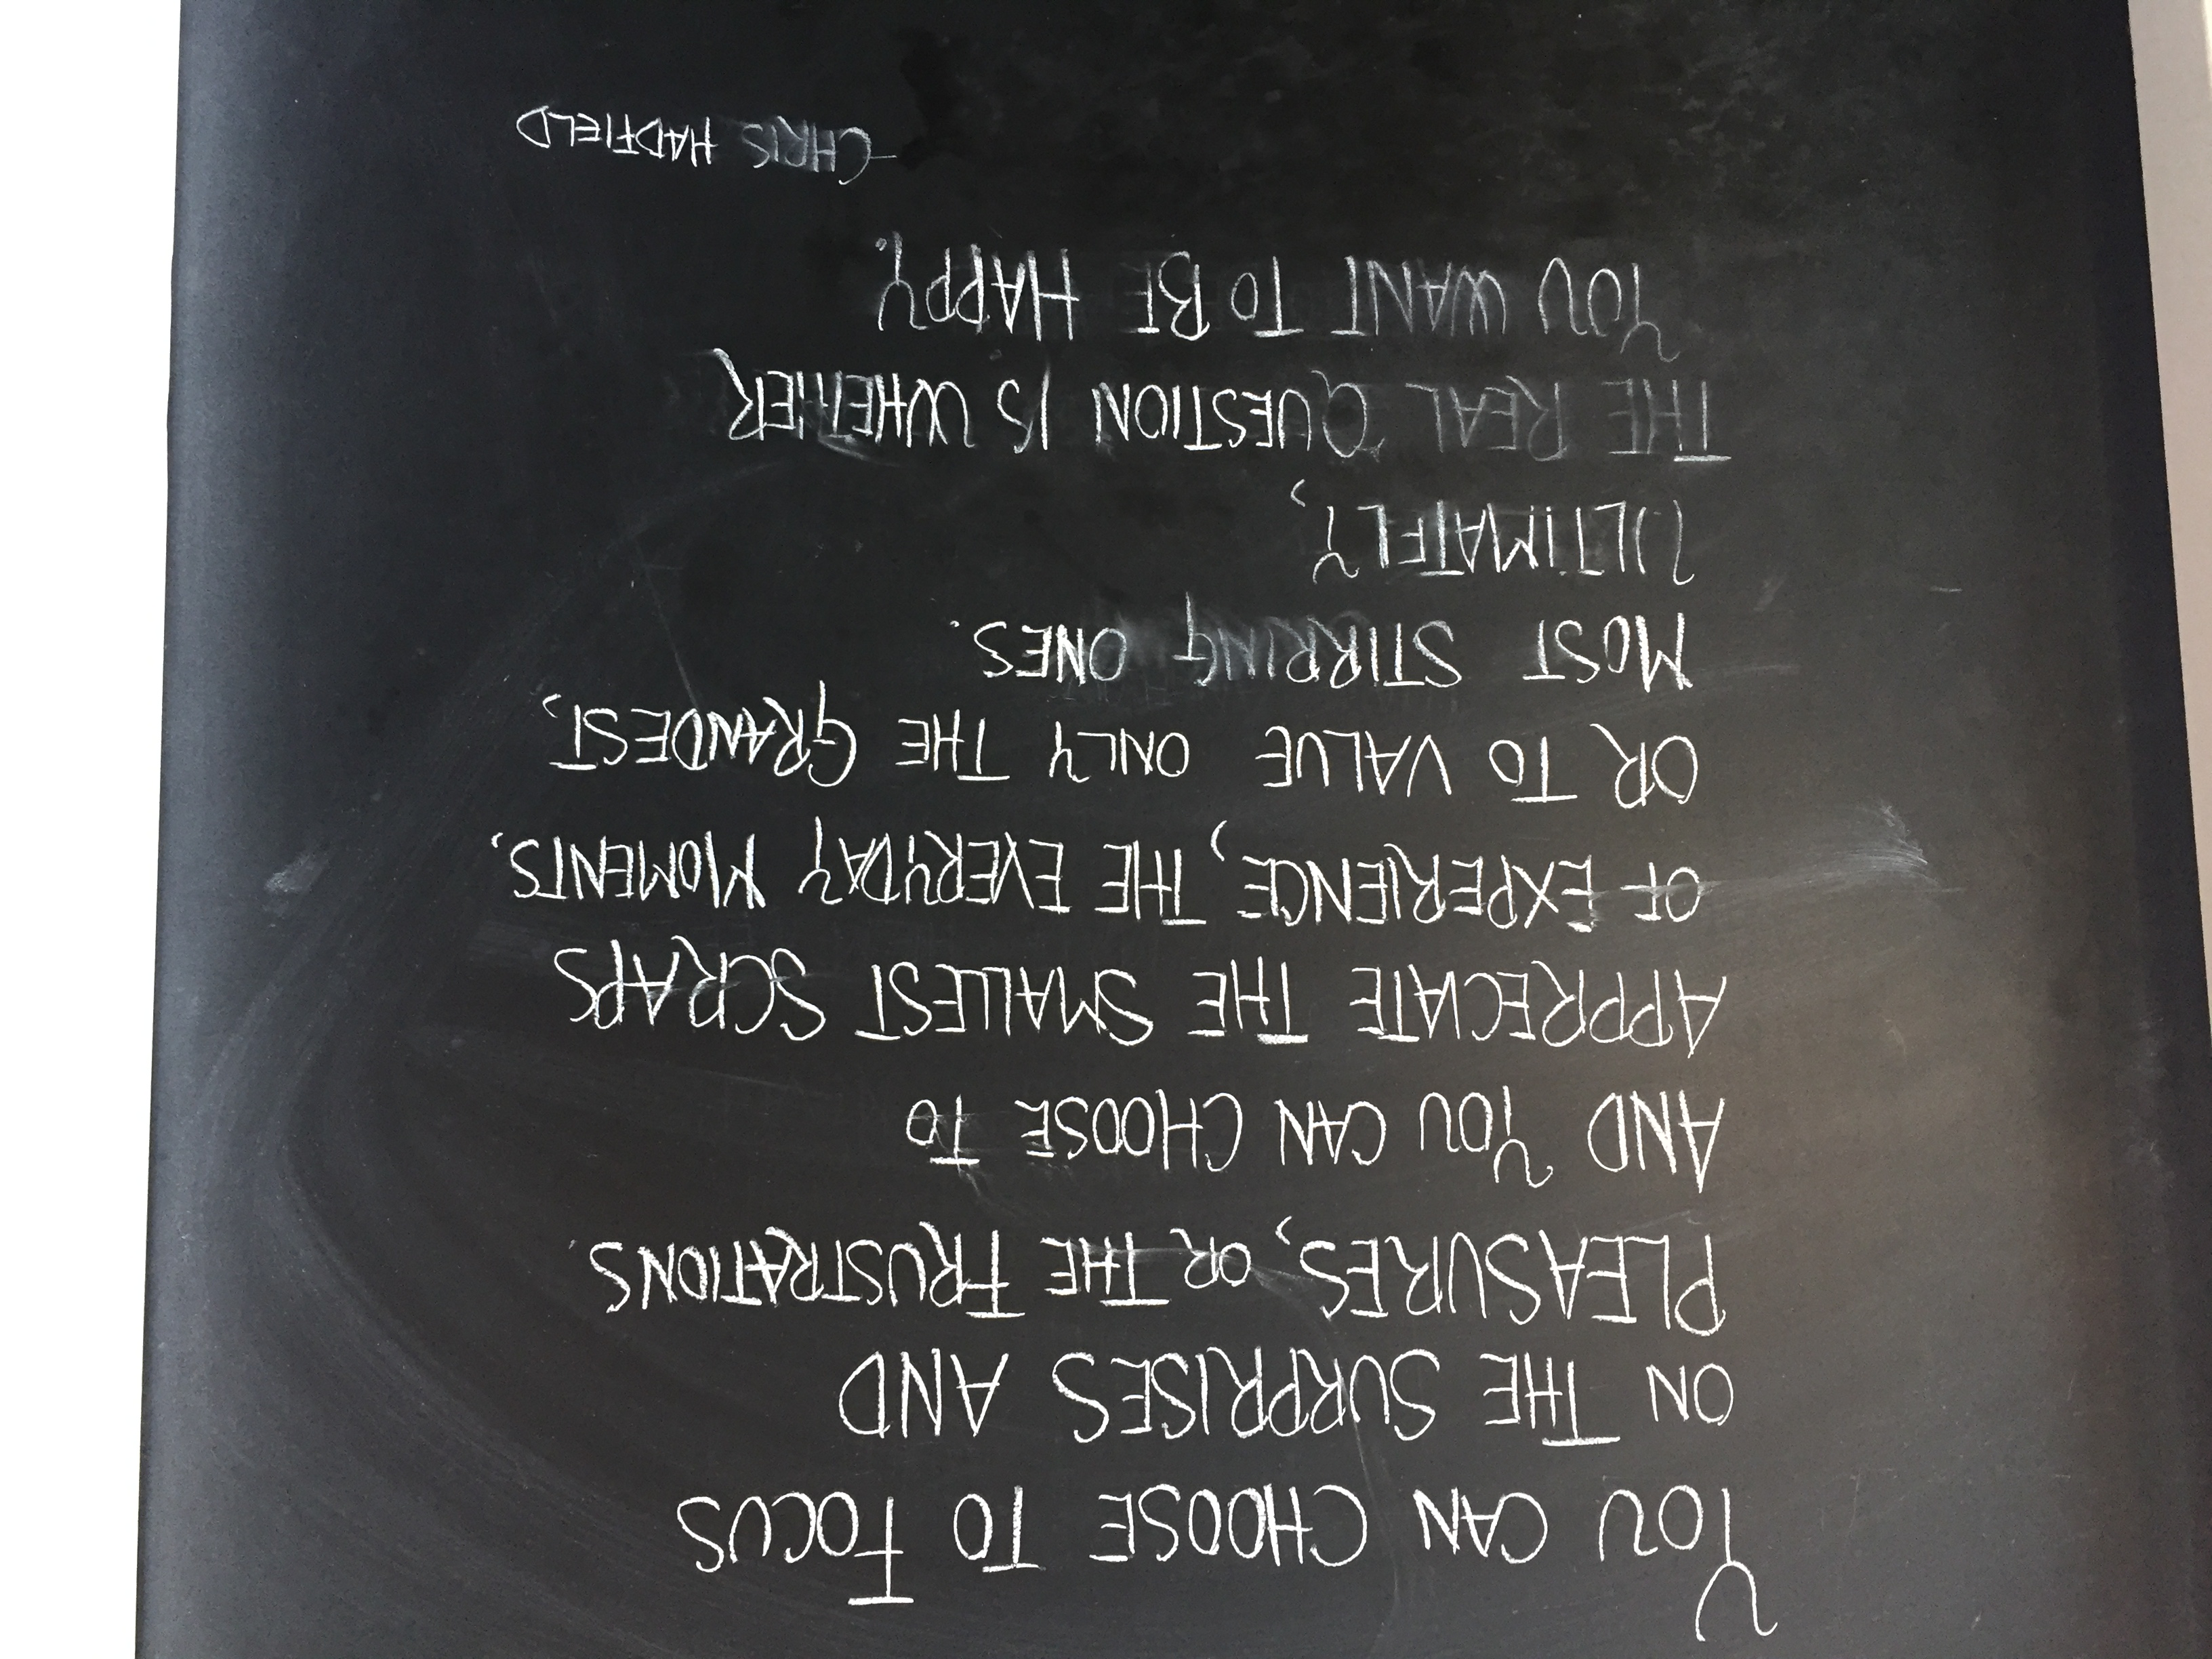 YOU CAN CHOOSE TO FOCUS
ON THE SURPRISES AND
PLEASURES, OR THE FRUSTRATIONS.
AND YOU CAN CHOOSE TO
APPRECIATE THE SMALLEST SCRAPS
OF EXPERIENCE, THE EVERYDAY MOMENTS,
OR TO VALUE ONLY THE GRANDEST,
MOST STIRRING ONES.
ULTIMATELY,
THE REAL QUESTION IS WHETHER
YOU WANT TO BE HAPPY.
-CHRIS HADFIELD